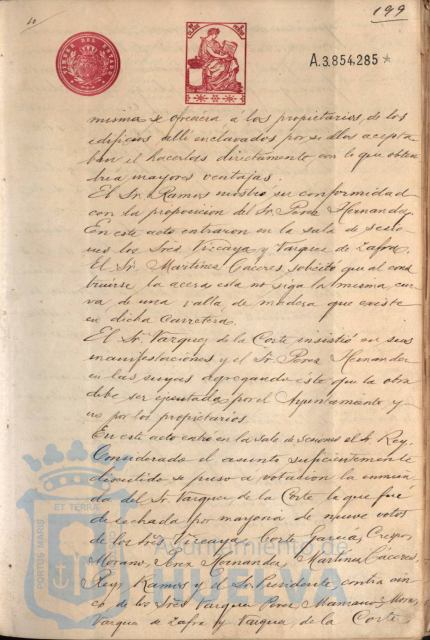 10
199
TIMBRE DEL ESTADO
A.3.854.285*
misma se ofreciera a los propietarios de los
edificios allí enclavados por si ellos acepta
ban el hacerlas directamente con lo que obten
dria mayores ventajas.
El Sr. Ramos mostró su conformidad
con la proposicion del Sr. Perez Hernandez.
En este acto entraron en la sala de sesio
nes los Sres Vizcaya y Vazquez de Zafra.
El Sr. Martinez Cáceres, solicitó que al cons
truirse la acera esta no siga la misma cur
va de una valta de madera que existe
en dicha Carretera.
El Sr. Vazquez de la Corte insistió en sus
manifestaciones y el Sr. Perez Hernandez
en las suyas agregando éste que la obra
debe ser ejecutada por el Ayuntamiento y
no por los propietarios.
En este acto entró en la Sala de Sesiones el Sr. Rey.
Considerado el asunto suficientemente
discutido se puso a votacion la enmien
da del Sr. Vazquez de la Corte la que fué
desechada por mayoria de nueve votos
de los Sres Vizcaya, Corte Garcia, Crespo
Morano, Perez Hernandez, Martinez Cáceres,
Rey, Ramos y el Sr. Presidente, contra cin
co de los Sres Vazquez Perez, Mora,
Vazquez de Zafra y Vazquez de la Corte
PORTUS MARIS
ET TERRAE
Ayuntamiento de
HUELVA